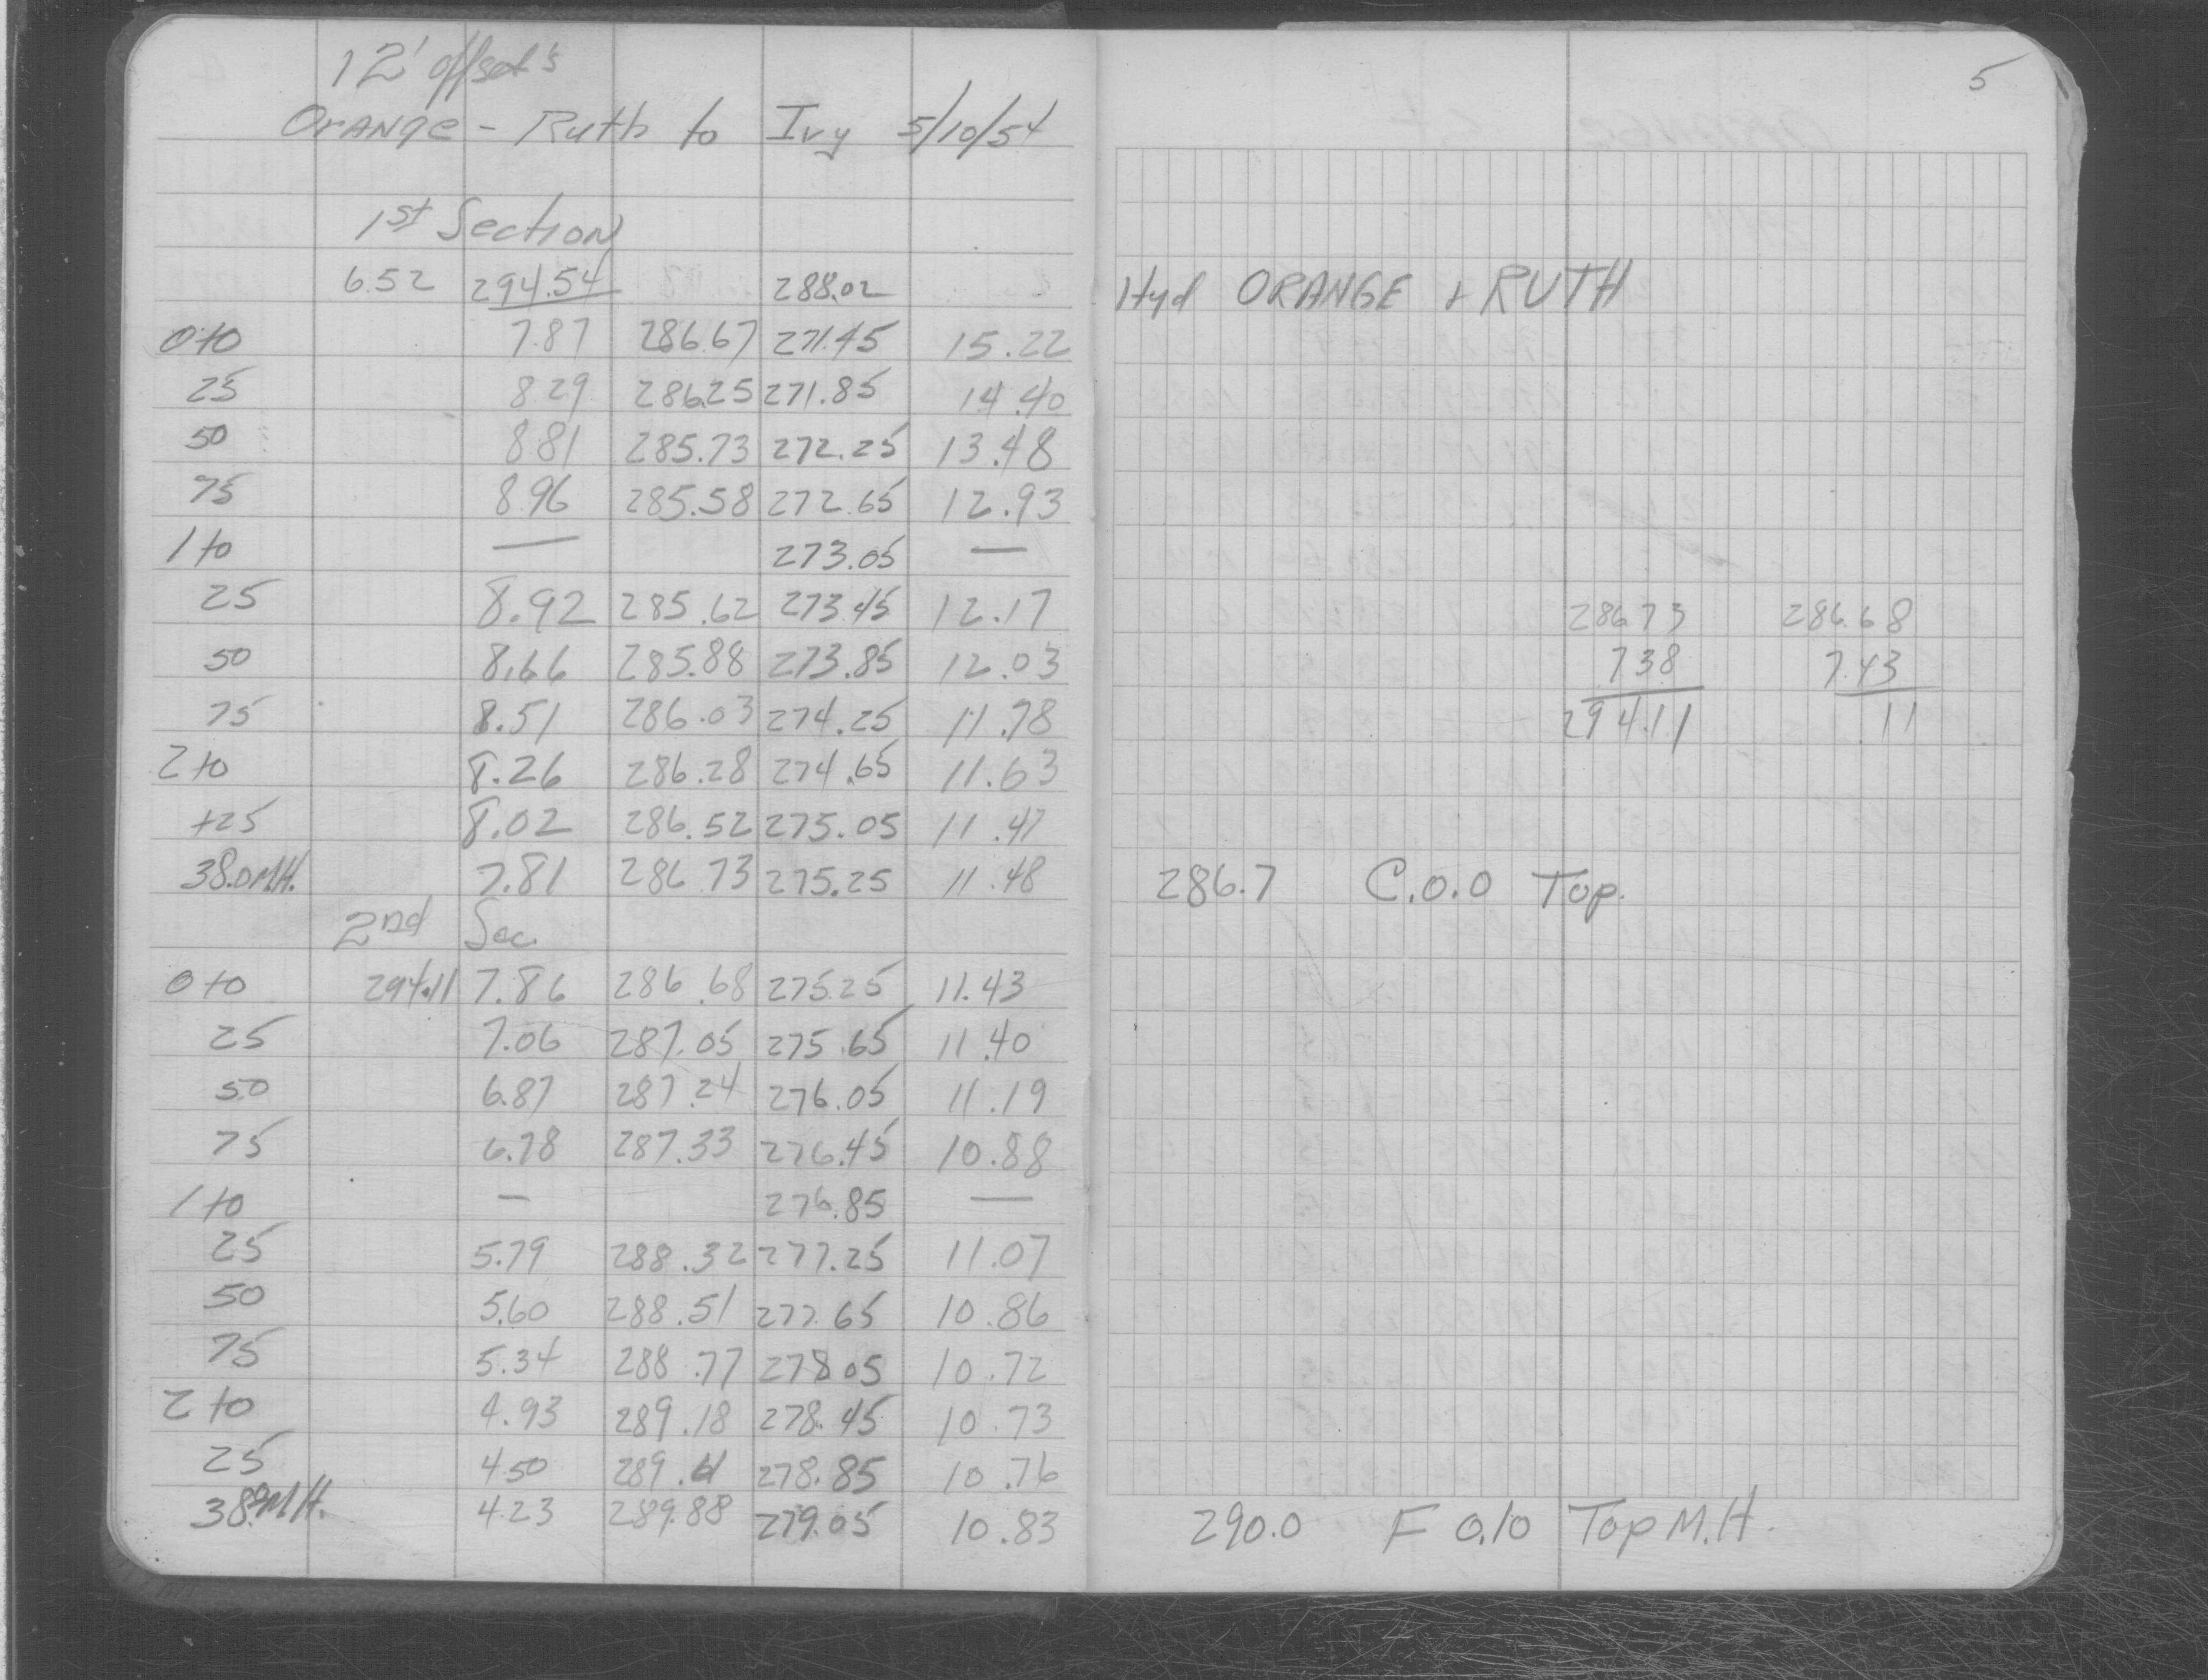 12' offset's
Orange - Ruth to Ivy 5/10/54
1st Section
6.52 294.54 288.02
0+0 7.87 286.67 271.45 15.22
25 8.29 286.25 271.85 14.40
50 8.81 285.73 272.25 13.48
75 8.96 285.58 272.65 12.93
1+0 — 273.05 —
25 8.92 285.62 273.45 12.17
50 8.66 285.88 273.85 12.03
75 8.51 286.03 274.25 11.78
2+0 8.26 286.28 274.65 11.63
+25 8.02 286.52 275.05 11.47
38.0 M.H. 7.81 286.73 275.25 11.48
2nd Sec.
0+0 294.11 7.86 286.68 275.25 11.43
25 7.06 287.05 275.65 11.40
50 6.87 287.24 276.05 11.19
75 6.78 287.33 276.45 10.88
1+0 — 276.85 —
25 5.79 288.32 277.25 11.07
50 5.60 288.51 277.65 10.86
75 5.34 288.77 278.05 10.72
2+0 4.93 289.18 278.45 10.73
25 4.50 289.61 278.85 10.76
38.0 M.H. 4.23 289.88 279.05 10.83
5
Hyd ORANGE + RUTH
286.73 286.68
7.38 7.43
294.11 11
286.7 C.O.O Top.
290.0 F 0.10 Top M.H.